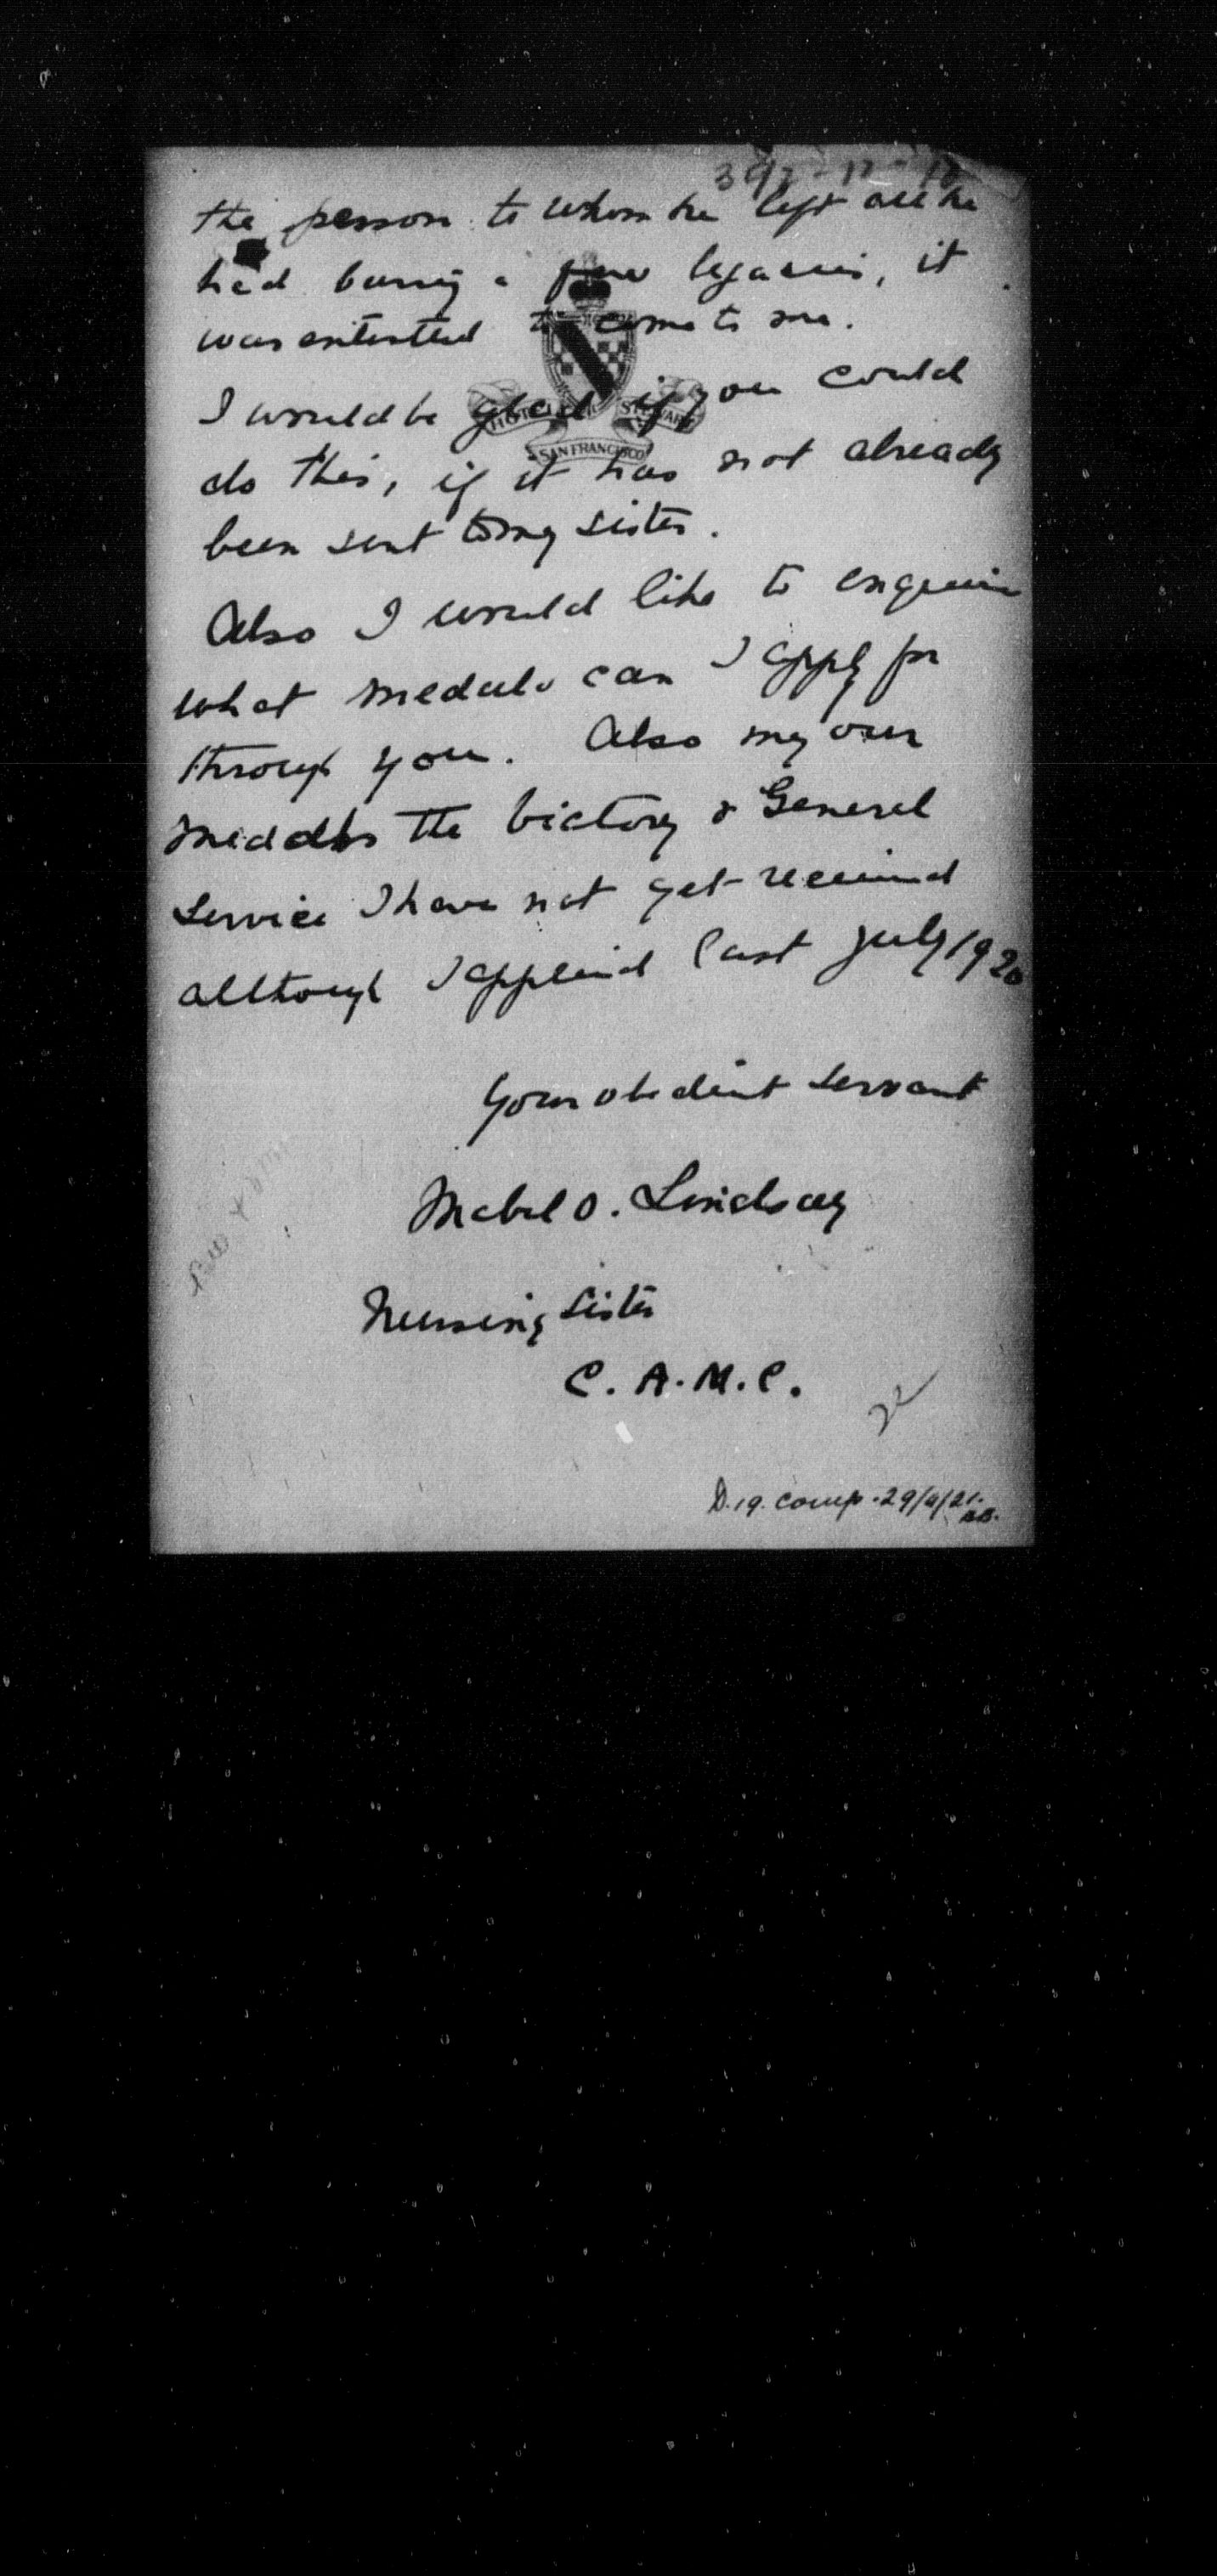 the person to whom he left all he
had barring a few legacies, it
was intended to come to me.
HOTEL STEWART
SAN FRANCISCO
I would be glad if you could
do this, if it has not already
been sent to my sister.
Also I would like to enquire
what medals can I apply for
through you. Also my own
medals the Victory & General
Service I have not yet received
although I applied last July 1920
Your obedient servant
Mabel O. Lindsay
Nursing Sister
C. A. M. C.
D.19. Comp. 29/4/21.